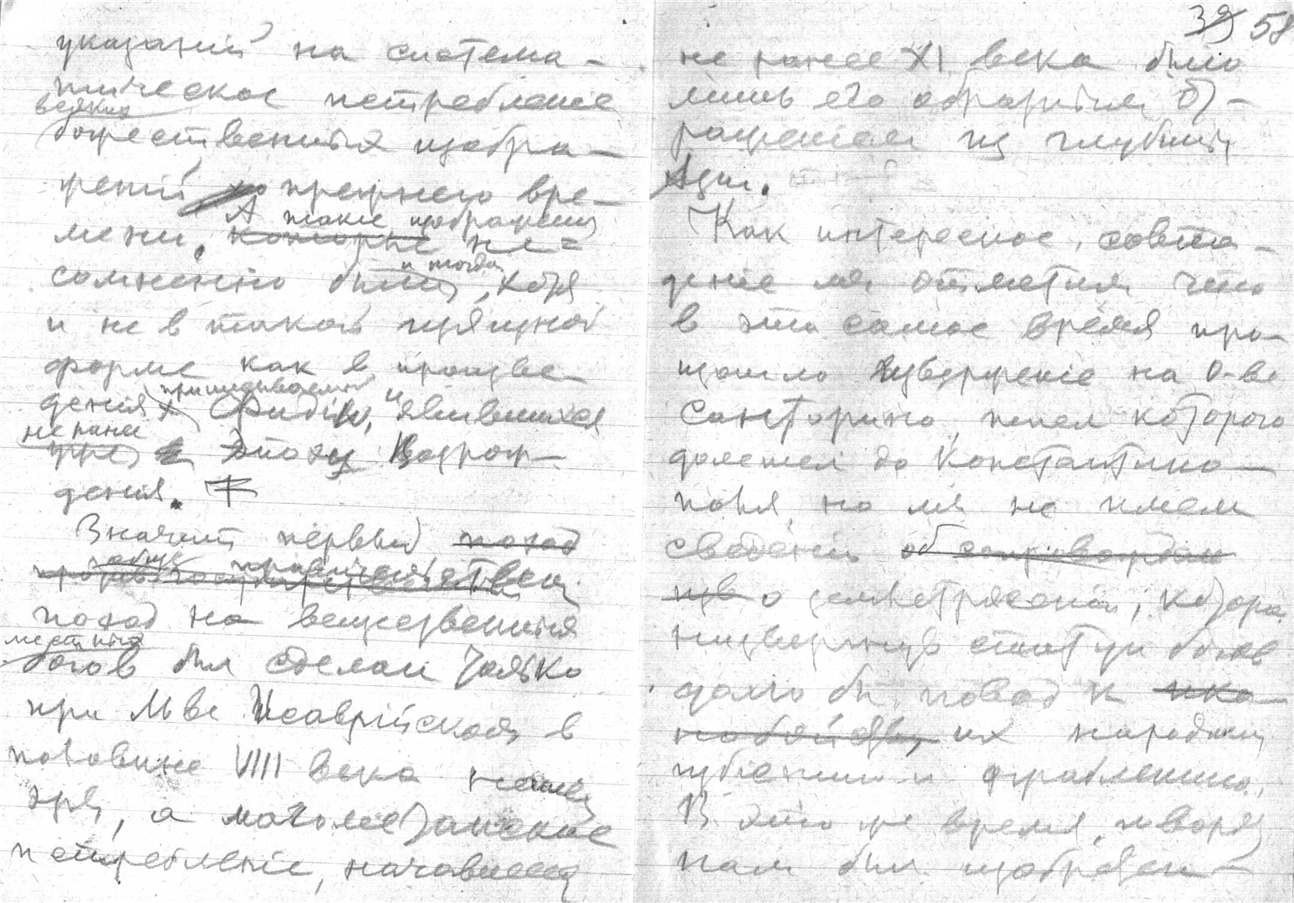 указаний на система-
тическое истребление
всяких
божественных изобра-
жений прежнего вре-
А такие изображения
мени. которые не=
и тогда
сомненно были, хотя
и не в такой изящной
форме как в произве-
приписываемых
дениях Фидию, явившихся
не ранее
эпохи Возрож-
дения.
Значит первый поход
поход на вещественных
местных
богов был сделан только
при Льве Исаврийском в
половине VIII века нашей
эры, а магометанское
истребление, начавшееся
39 58
не ранее XI века было
лишь его обратным от-
ражением из глубины
Азии.
Как интересное совпа-
дение мы отметим что
в это самое время про-
изошло извержение на о-ве
Санторино, пепел которого
долетел до Константино-
поля, но мы не имеем
сведений
о землетрясении, которое
низвергнув статуи богов
дало бы повод к ико-
их народным
избиениям и ограблению.
В это же время, говорят
нам был изобретен